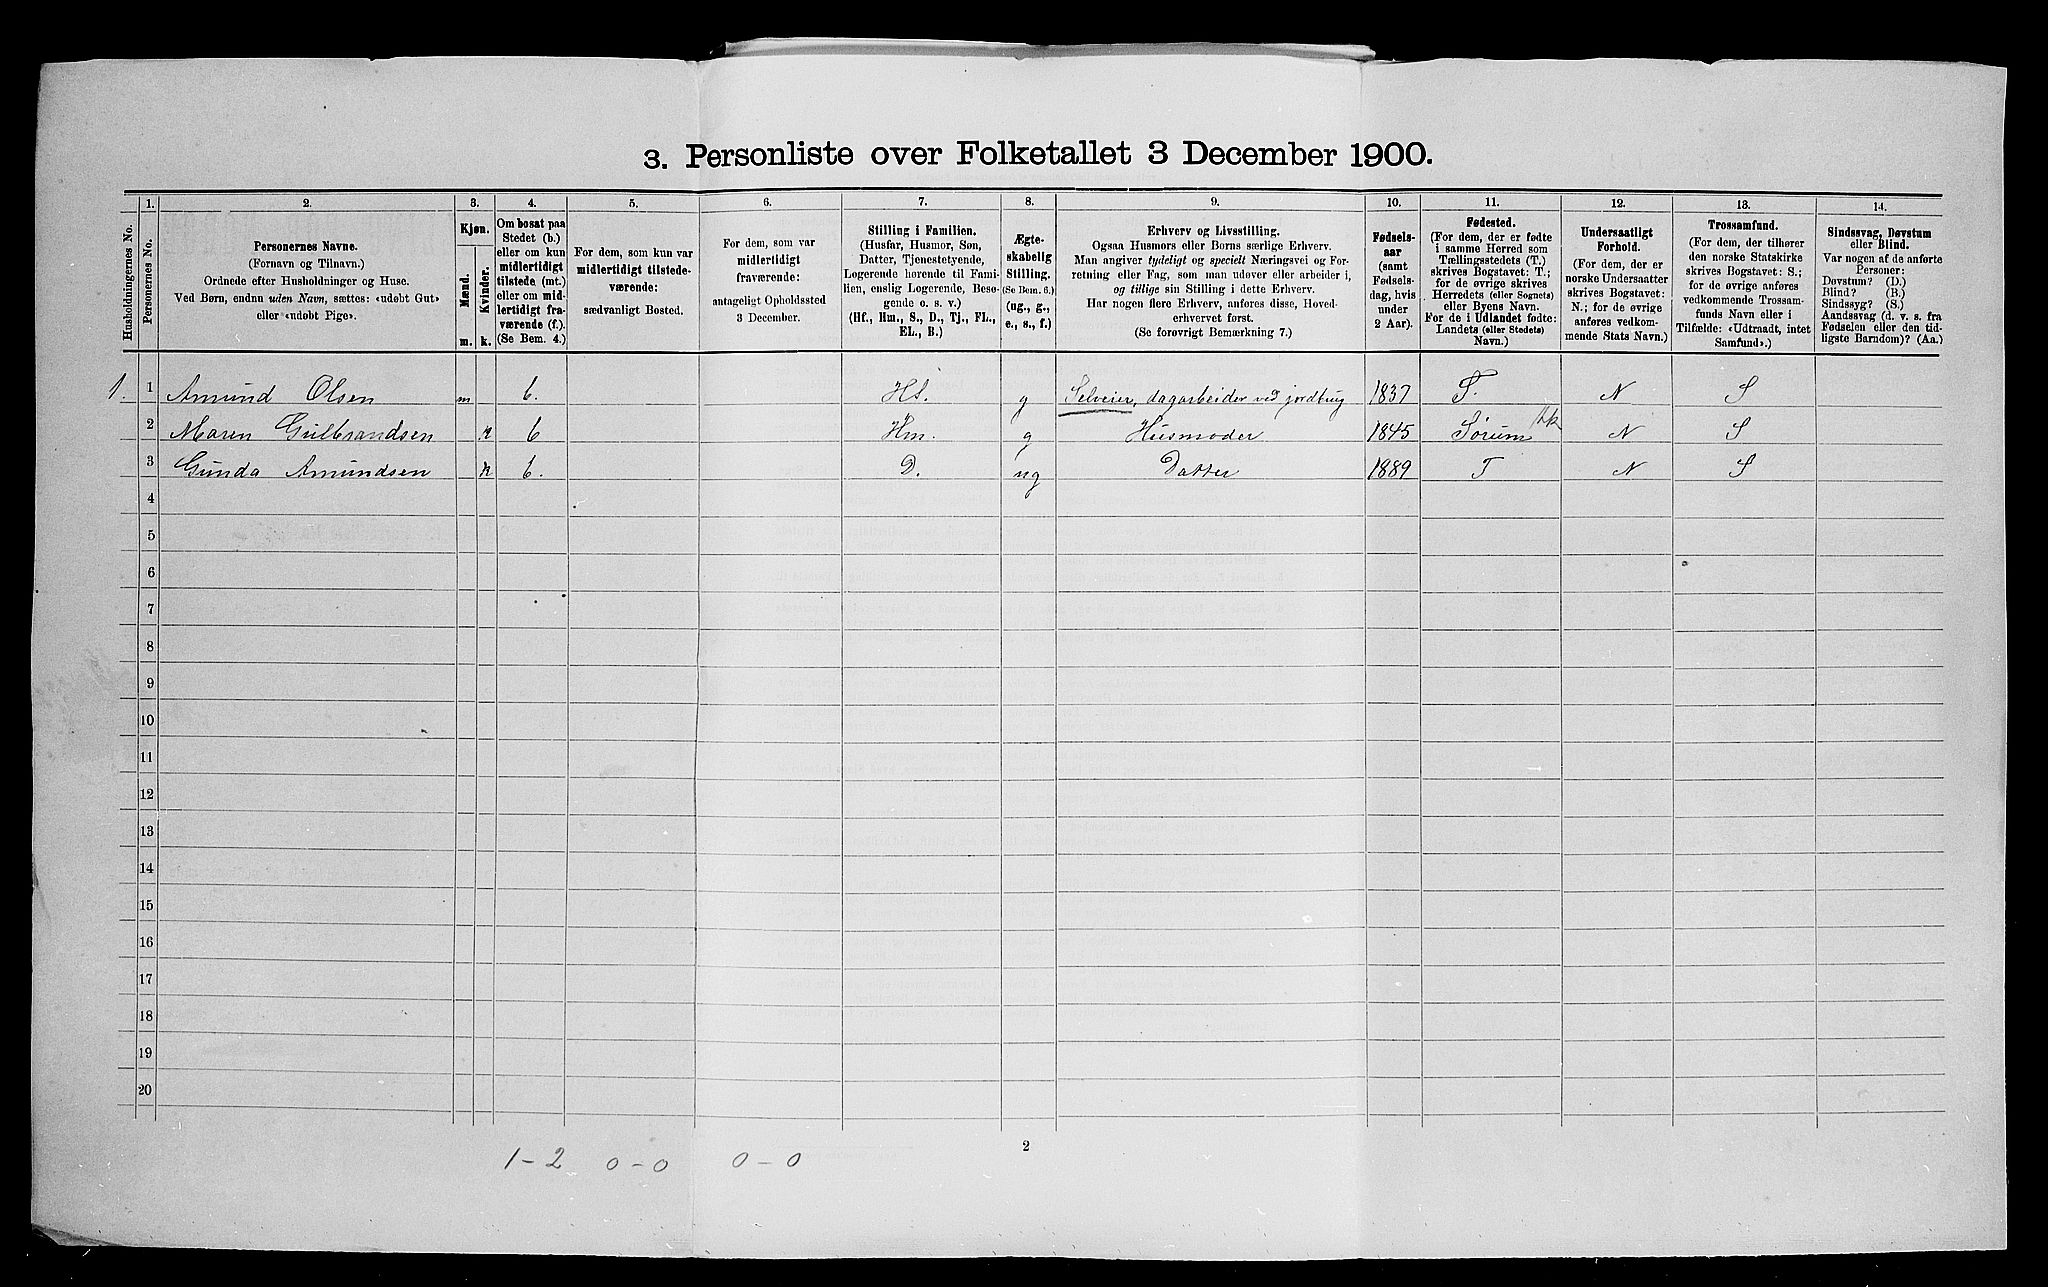 3. Personliste over Folketallet 3 December 1900.
1. 2. 3. 4. 5. 6. 7. 8. 9. 10. 11. 12. 13. 14.
Husholdningernes No.
Personernes No.
Personernes Navne.
(Fornavn og Tilnavn.)
Ordnede efter Husholdninger og Huse.
Ved Børn, endnu uden Navn, sættes: «udøbt Gut»
eller «udøbt Pige».
Kjøn.
Mænd.
Kvinder.
m. k.
Om bosat paa
Stedet (b.)
eller om kun
midlertidigt
tilstede (mt.)
eller om mid-
lertidigt fra-
værende (f.).
(Se Bem. 4.)
For dem, som kun var
midlertidigt tilstede-
værende:
sædvanligt Bosted.
For dem, som var
midlertidigt
fraværende:
antageligt Opholdssted
3 December.
Stilling i Familien.
(Husfar, Husmor, Søn,
Datter, Tjenestetyende,
Logerende hørende til Fami-
lien, enslig Logerende, Besø-
gende o. s. v.)
(Hf., Hm., S., D., Tj., FL.,
EL., B.)
Ægte-
skabelig
Stilling.
(Se Bem. 6.)
(ug., g.,
e., s., f.)
Erhverv og Livsstilling.
Ogsaa Husmors eller Børns særlige Erhverv.
Man angiver tydeligt og specielt Næringsvei og For-
retning eller Fag, som man udøver eller arbeider i,
og tillige sin Stilling i dette Erhverv.
Har nogen flere Erhverv, anføres disse, Hoved-
erhvervet først.
(Se forøvrigt Bemærkning 7.)
Fødsels-
aar
(samt
Fødsels-
dag, hvis
under
2 Aar).
Fødested.
(For dem, der er fødte
i samme Herred som
Tællingsstedets (T.)
skrives Bogstavet: T.;
for de øvrige skrives
Herredets (eller Sognets)
eller Byens Navn.
For de i Udlandet fødte:
Landets (eller Stedets)
Navn.)
Undersaatligt
Forhold.
(For dem, der er
norske Undersaatter
skrives Bogstavet:
N.; for de øvrige
anføres vedkom-
mende Stats Navn.)
Trossamfund.
(For dem, der tilhører
den norske Statskirke
skrives Bogstavet: S.;
for de øvrige anføres
vedkommende Trossam-
funds Navn eller i
Tilfælde: «Udtraadt, intet
Samfund».)
Sindssvag, Døvstum
eller Blind.
Var nogen af de anførte
Personer:
Døvstum? (D.)
Blind? (B.)
Sindssyg? (S.)
Aandssvag (d. v. s. fra
Fødselen eller den tid-
ligste Barndom)? (Aa.)
1. 1 Amund Olsen m b. Hf. g Selveier, dagarbeider ved jordbrug 1837 T. N S
2 Maren Gulbrandsen k b Hm. g Husmoder 1845 Sørum N S
3 Gunda Amundsen k b. D. ug Datter 1889 T N S
4
5
6
7
8
9
10
11
12
13
14
15
16
17
18
19
20
2
1-2 0-0 0-0